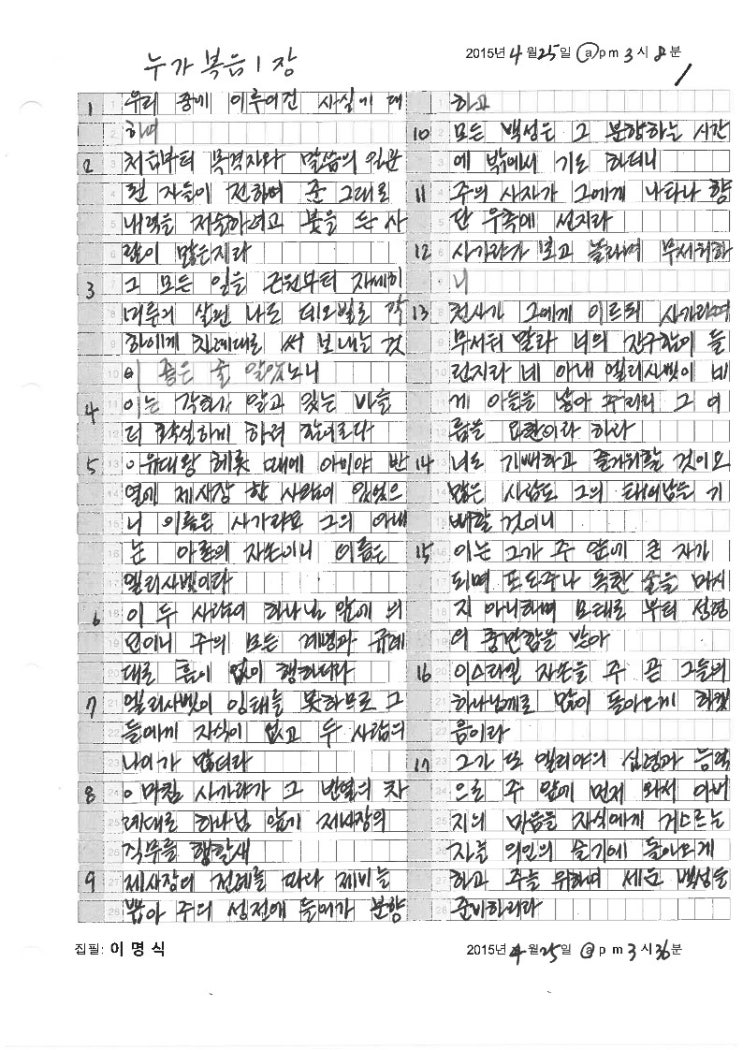 누가복음 1장
2015년 4월 25일 ⓐpm 3시 8분
1 우리 중에 이루어진 사실에 대
하여
2 처음부터 목격자와 말씀의 일꾼
된 자들이 전하여 준 그대로
내력을 저술하려고 붓을 든 사
람이 많은지라
3 그 모든 일을 근원부터 자세히
미루어 살핀 나도 데오빌로 각
하에게 차례대로 써 보내는 것
이 좋은 줄 알았노니
4 이는 각하가 알고 있는 바를
더 확실하게 하려 함이로라
5 ㅇ유대왕 헤롯 때에 아비야 반
열에 제사장 한 사람이 있었으
니 이름은 사가랴요 그의 아내
는 아론의 자손이니 이름은
엘리사벳이라
6 이 두 사람이 하나님 앞에 의
인이니 주의 모든 계명과 규례
대로 흠이 없이 행하더라
7 엘리사벳이 잉태를 못하므로 그
들에게 자식이 없고 두 사람의
나이가 많더라
8 ㅇ마침 사가랴가 그 반열의 차
례대로 하나님 앞에 제사장의
직무를 행할새
9 제사장의 전례를 따라 제비를
뽑아 주의 성전에 들어가 분향
하고
10 모든 백성은 그 분향하는 시간
에 밖에서 기도 하더니
11 주의 사자가 그에게 나타나 향
단 우측에 선지라
12 사가랴가 보고 놀라며 무서워하
니
13 천사가 그에게 이르되 사가랴여
무서워 말라 너의 간구함이 들
린지라 네 아내 엘리사벳이 네
게 아들을 낳아 주리니 그 이
름을 요한이라 하라
14 너도 기뻐하고 즐거워할 것이요
많은 사람도 그의 태어남을 기
뻐할 것이니
15 이는 그가 주 앞에 큰 자가
되며 포도주나 독한 술을 마시
지 아니하며 모태로 부터 성령
의 충만함을 받아
16 이스라엘 자손을 주 곧 그들의
하나님께로 많이 돌아오게 하겠
음이라
17 그가 또 엘리야의 심령과 능력
으로 주 앞에 먼저 와서 아버
지의 마음을 자식에게 거스르는
자를 의인의 슬기에 돌아오게
하고 주를 위하여 세운 백성을
준비하리라
집필: 이 명 식
2015년 4월 25일 ⓐpm 3시 36분